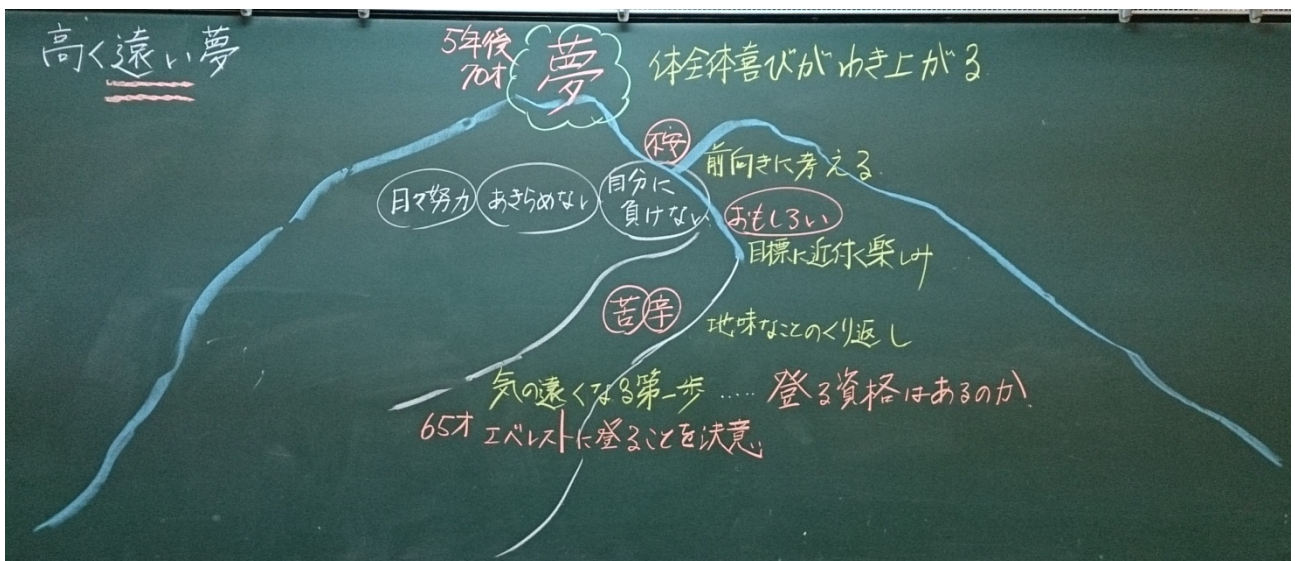 高く遠い夢
5年後
70才
夢
体全体喜びがわき上がる
不安
前向きに考える
日々努力
あきらめない
自分に
負けない
おもしろい
目標に近付く楽しみ
苦
辛
地味なことのくり返し
気の遠くなる第一歩……登る資格はあるのか
65才 エベレストに登ることを決意